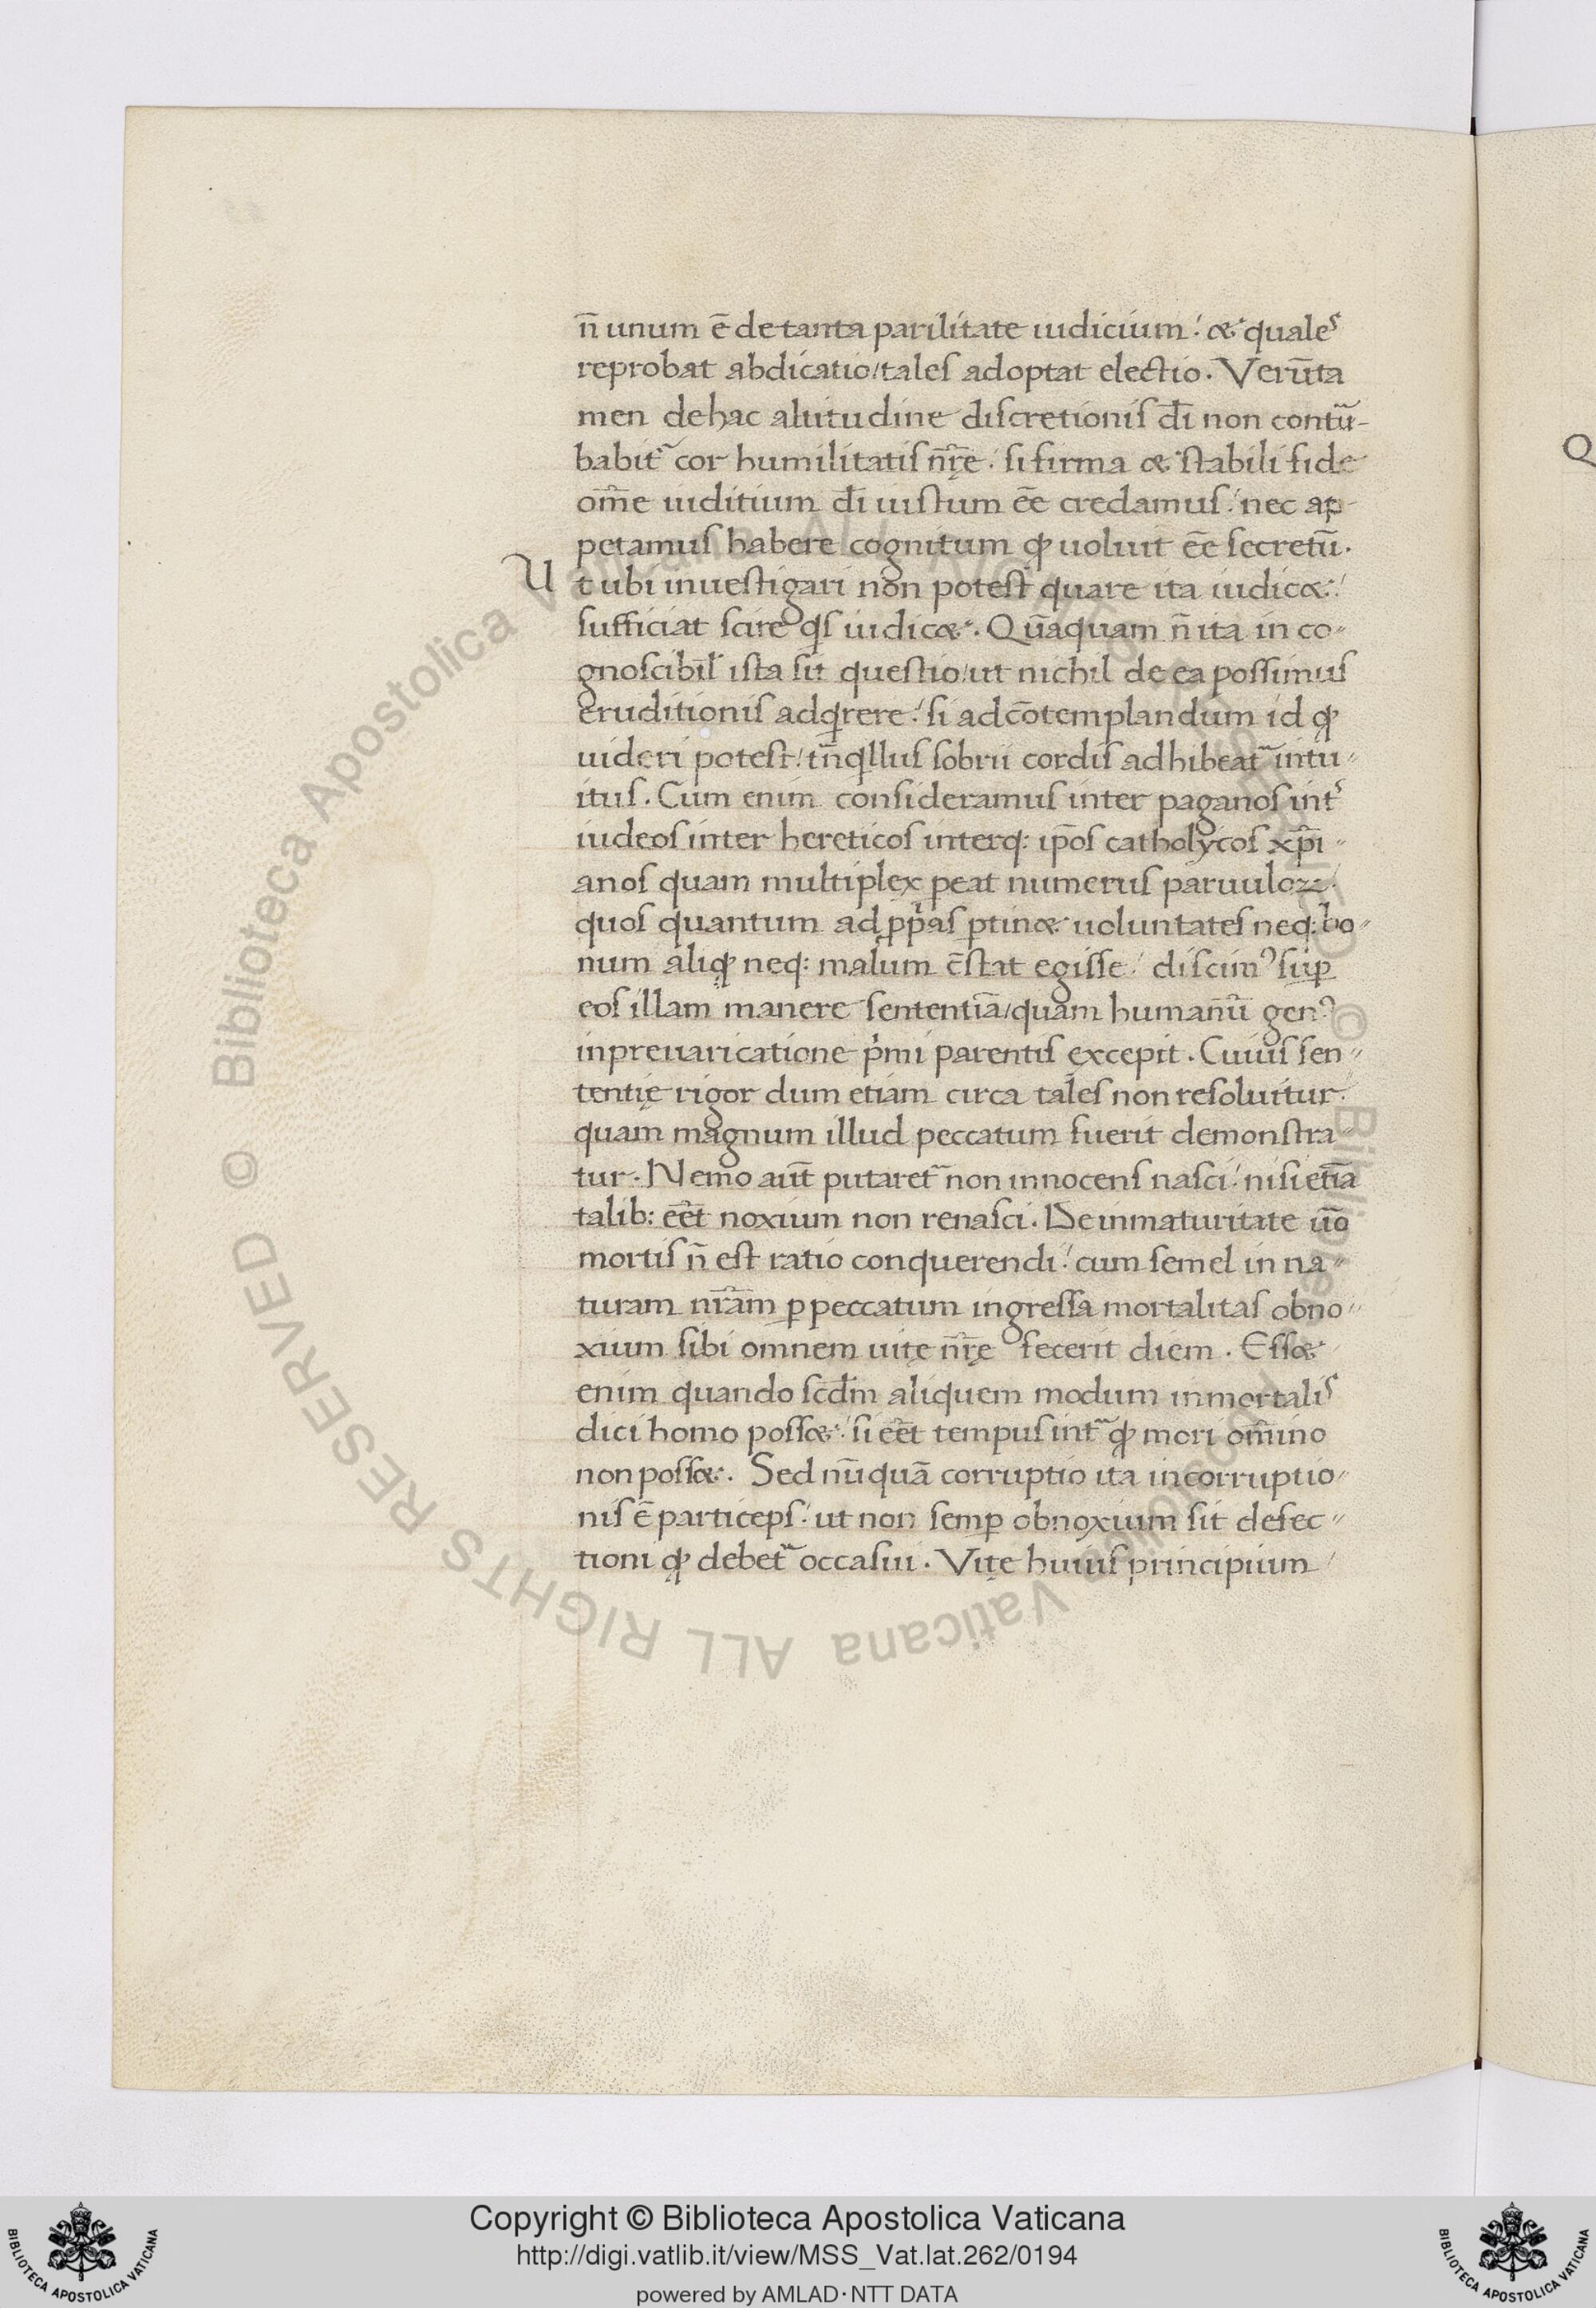 n̄ unum ē de tanta parilitate iudicium! & quales
reprobat abdicatio / tales adoptat electio. Verūta
men de hac altitudine discretionis dī non contur̄-
babit᷑ cor humilitatis nr̄ę. si firma & stabili fide
om̄e iuditium dī iustum eē credamus! nec ap-
petamus habere cognitum qđ uoluit eē secretū.
Ut ubi inuestigari non potest quare ita iudic&!
sufficiat scire qs iudic&. Quāquam n̄ ita in co-
gnoscibil̄ ista sit questio / ut nichil de ea possimus
eruditionis adqrere! si ad cōtemplandum id qđ
uideri potest / tn̄qllus sobrii cordis adhibeat᷑ intu-
itus. Cum enim consideramus inter paganos int᷑
iudeos inter hereticos interq: ip̄os catholycos xp̄i-
anos quam multiplex ꝑeat numerus paruuloꝝ!
quos quantum ad ꝓp̄as ꝑtin& uoluntates neq: bo-
num aliqđ neq: malum c̄stat egisse! discimꝰ suꝑ
eos illam manere sententiā / quam humanū genꝰ
in preuaricatione p̄mi parentis excepit. Cuius sen-
tentię rigor dum etiam circa tales non resoluitur.
quam magnum illud peccatum fuerit demonstra-
tur. Nemo aūt putaret᷑ non innocens nasci! nisi etiā
talib: eēt noxium non renasci. De inmaturitate ūo
mortis n̄ est ratio conquerendi! cum semel in na-
turam nr̄am ꝑ peccatum ingressa mortalitas obno-
xium sibi omnem uitę nr̄ę fecerit diem. Ess&
enim quando scd̄m aliquem modum inmortalis
dici homo poss&! si eēt tempus int᷑ qđ mori om̄ino
non poss&. Sed nūquā corruptio ita incorruptio-
nis ē particeps! ut non semꝑ obnoxium sit defec-
tioni qđ debet᷑ occasui. Vitę huius principium
Q
© Biblioteca Apostolica Vaticana ALL RIGHTS RESERVED
© Biblioteca Apostolica Vaticana ALL RIGHTS RESERVED
Copyright © Biblioteca Apostolica Vaticana
http://digi.vatlib.it/view/MSS_Vat.lat.262/0194
powered by AMLAD·NTT DATA
BIBLIOTECA APOSTOLICA VATICANA
BIBLIOTECA APOSTOLICA VATICANA